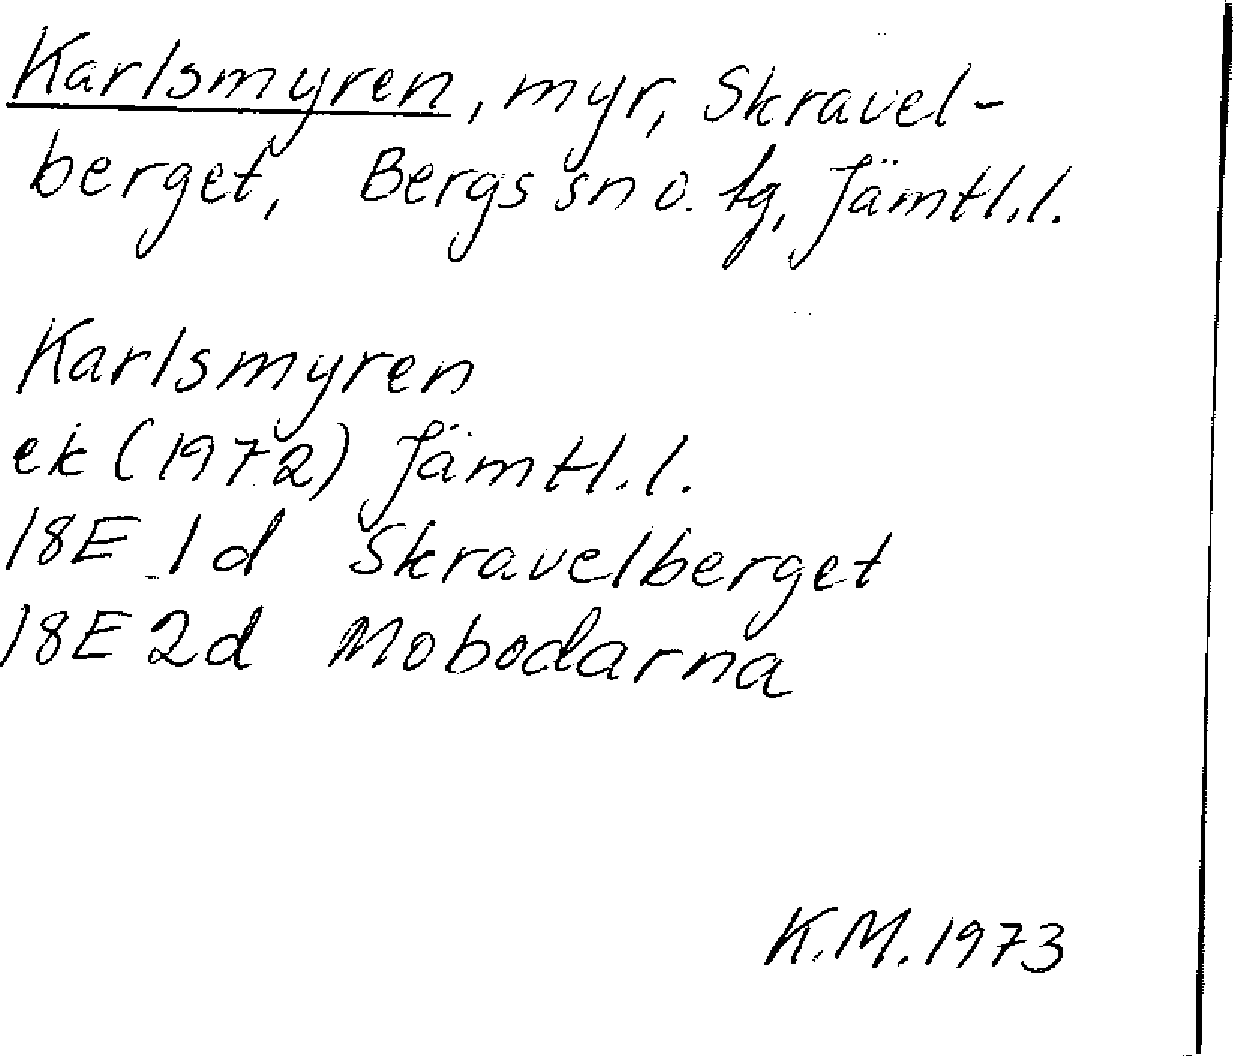 Karlsmyren, myr, Skravel-
berget, Bergs sn o. tg, Jämtl.l.
Karlsmyren
ek (1972) Jämtl.l.
18E 1d Skravelberget
18E 2d Mobodarna
K.M. 1973